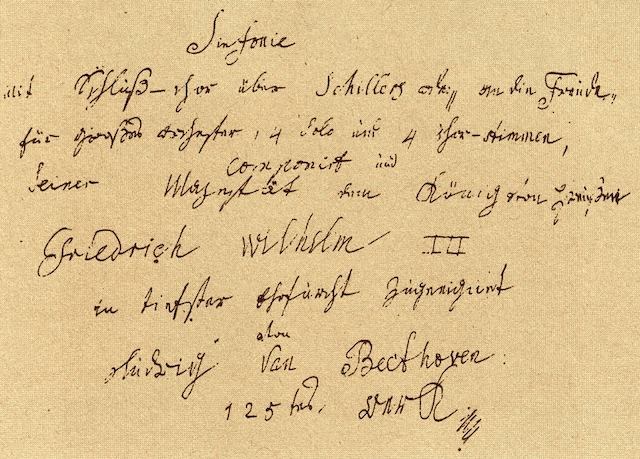 Sinfonie
mit Schluß-chor über Schillers ode„ an die Freude„
für großes orchester, 4 Solo und 4 chor-stimmen,
componirt und
Seiner Majestät dem König von Preußen
Friedrich Wilhelm III
in tiefster Ehrfurcht zugeeignet
von
Ludwig van Beethoven
125tes Werk